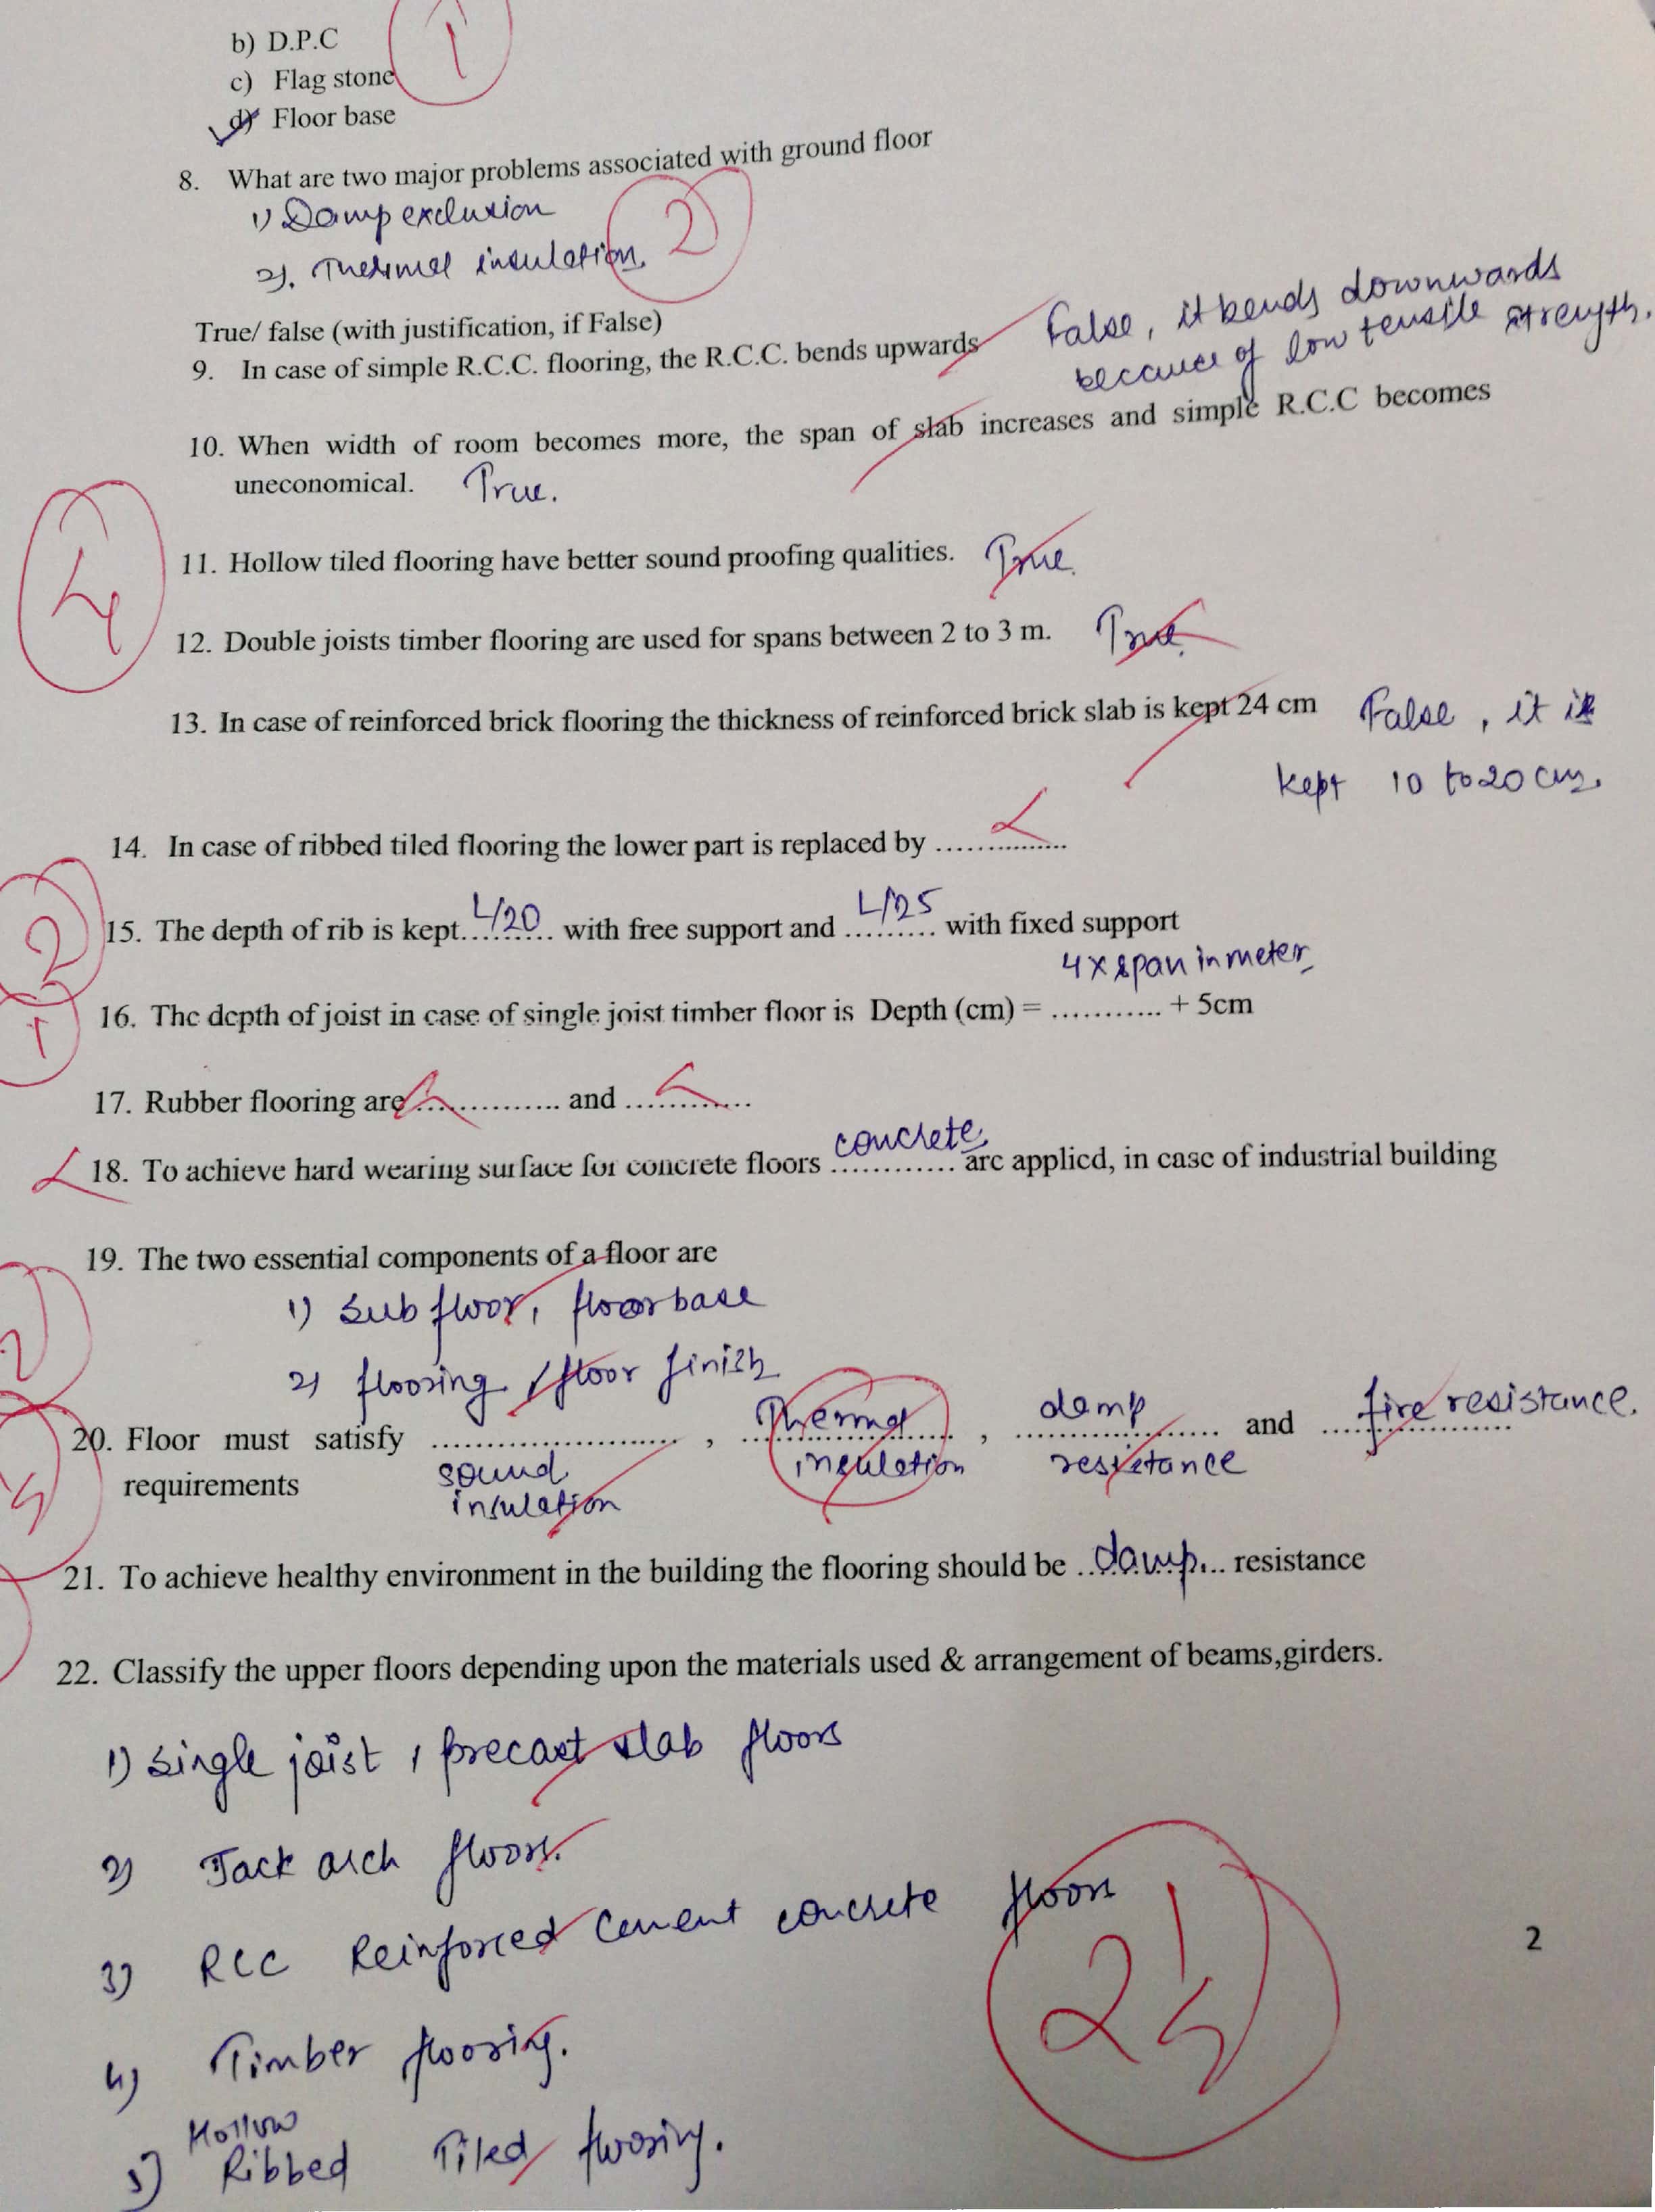 b) D.P.C
1
c) Flag stone
d) Floor base
8. What are two major problems associated with ground floor
1) Damp exclusion
2). Thermal insulation.
2
True/ false (with justification, if False)
9. In case of simple R.C.C. flooring, the R.C.C. bends upwards False, it bends downwards
because of low tensile strength.
10. When width of room becomes more, the span of slab increases and simple R.C.C becomes
uneconomical. True.
4
11. Hollow tiled flooring have better sound proofing qualities. True.
12. Double joists timber flooring are used for spans between 2 to 3 m. True.
13. In case of reinforced brick flooring the thickness of reinforced brick slab is kept 24 cm False, it is
kept 10 to 20 cm.
14. In case of ribbed tiled flooring the lower part is replaced by ...............
2
15. The depth of rib is kept. L/20 with free support and L/25 with fixed support
4 x span in meter
16. The depth of joist in case of single joist timber floor is Depth (cm) = ........... + 5cm
1
17. Rubber flooring are ............... and .............
18. To achieve hard wearing surface for concrete floors concrete are applied, in case of industrial building
19. The two essential components of a floor are
1) Sub floor, floor base
2) flooring / floor finish
20. Floor must satisfy sound insulation , Thermal insulation , damp resistance and fire resistance.
requirements
21. To achieve healthy environment in the building the flooring should be ..damp... resistance
22. Classify the upper floors depending upon the materials used & arrangement of beams,girders.
1) Single joist, precast slab floors
2) Jack arch floors.
3) RCC Reinforced Cement concrete floors
4) Timber flooring.
Hollow
5) Ribbed Tiled flooring.
2